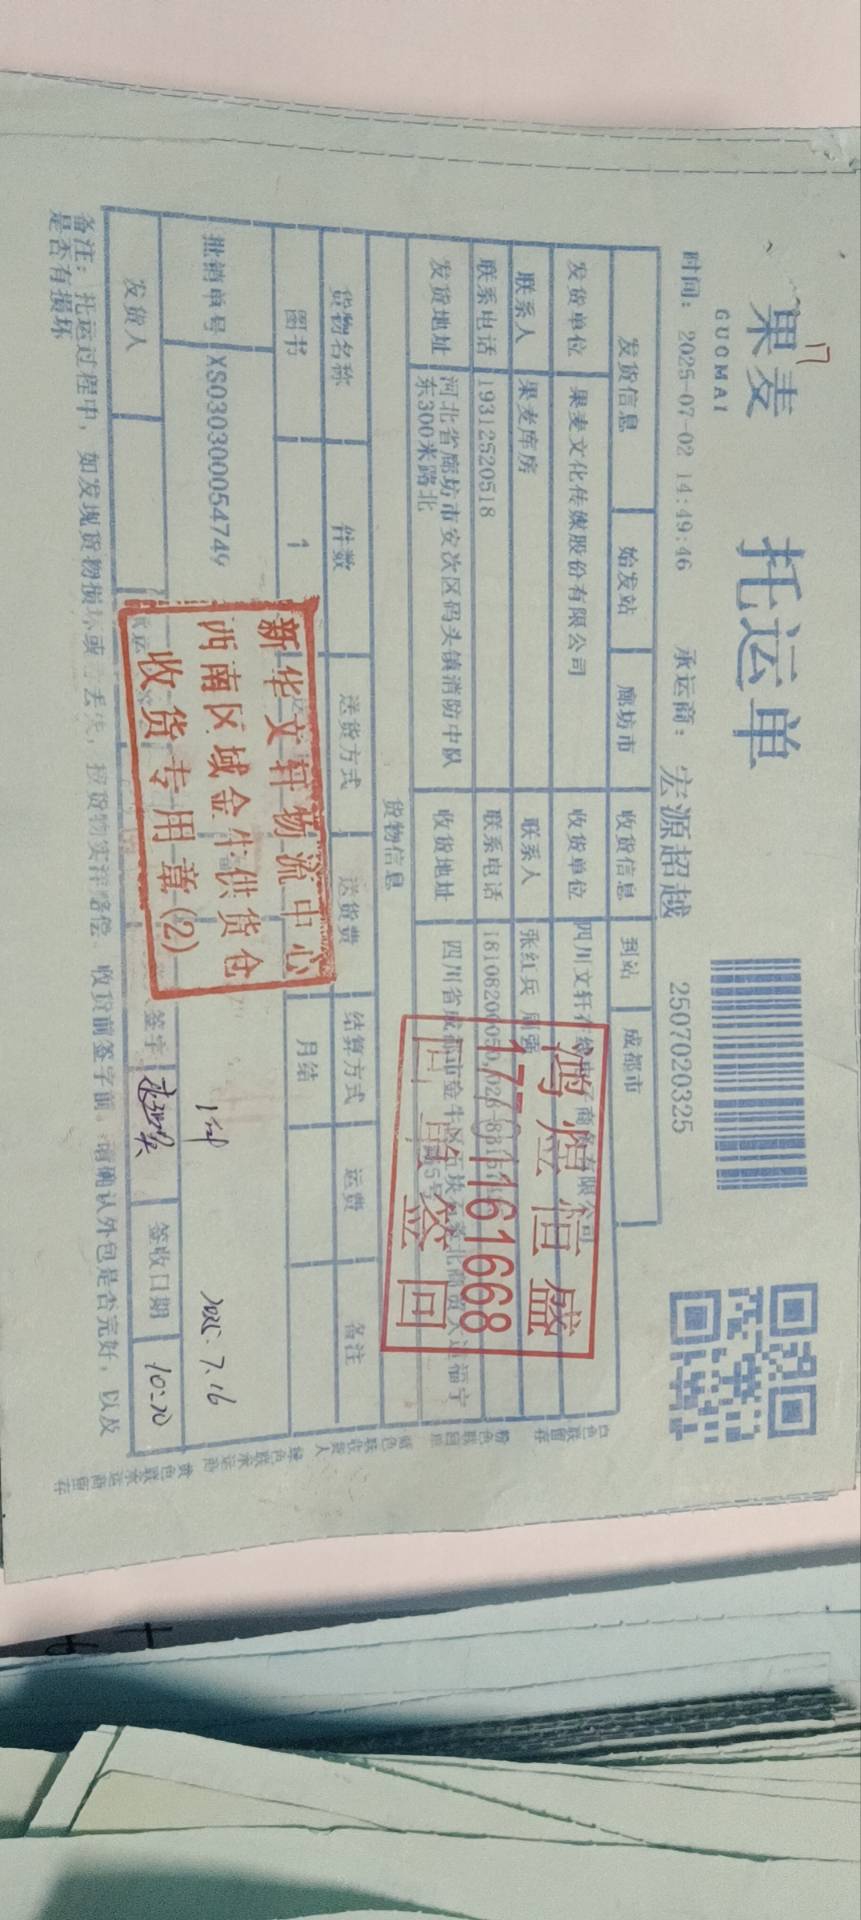 17
果麦 托运单
GUOMAI
时间: 2025-07-02 14:49:46 承运商: 宏源超越 2507020325
发货信息 始发站 廊坊市 收货信息 到站 成都市
发货单位 果麦文化传媒股份有限公司 收货单位 四川文轩在线电子商务有限公司
联系人 果麦库房 联系人 张红兵
联系电话 19312520518 联系电话
发货地址 河北省廊坊市安次区码头镇消防中队
东300米路北
收货地址 四川省成都市金牛区
货物信息
货物名称 件数 送货方式 送货费 结算方式 运费 备注
图书 1 月结
批销单号 XS030300054749
1件 2025.7.16
发货人 签字 签收日期 10:20
备注: 托运过程中, 如发现货物损坏或者丢失, 按货物实洋赔偿。收货前签字前, 请确认外包是否完好, 以及
是否有损坏
新华文轩物流中心
西南区域金牛供货仓
收货专用章(2)
鸿煊恒盛
17701161668
回单签回
白色联留存 粉色联回单 蓝色联收货人 绿色联承运商 黄色联承运商留存